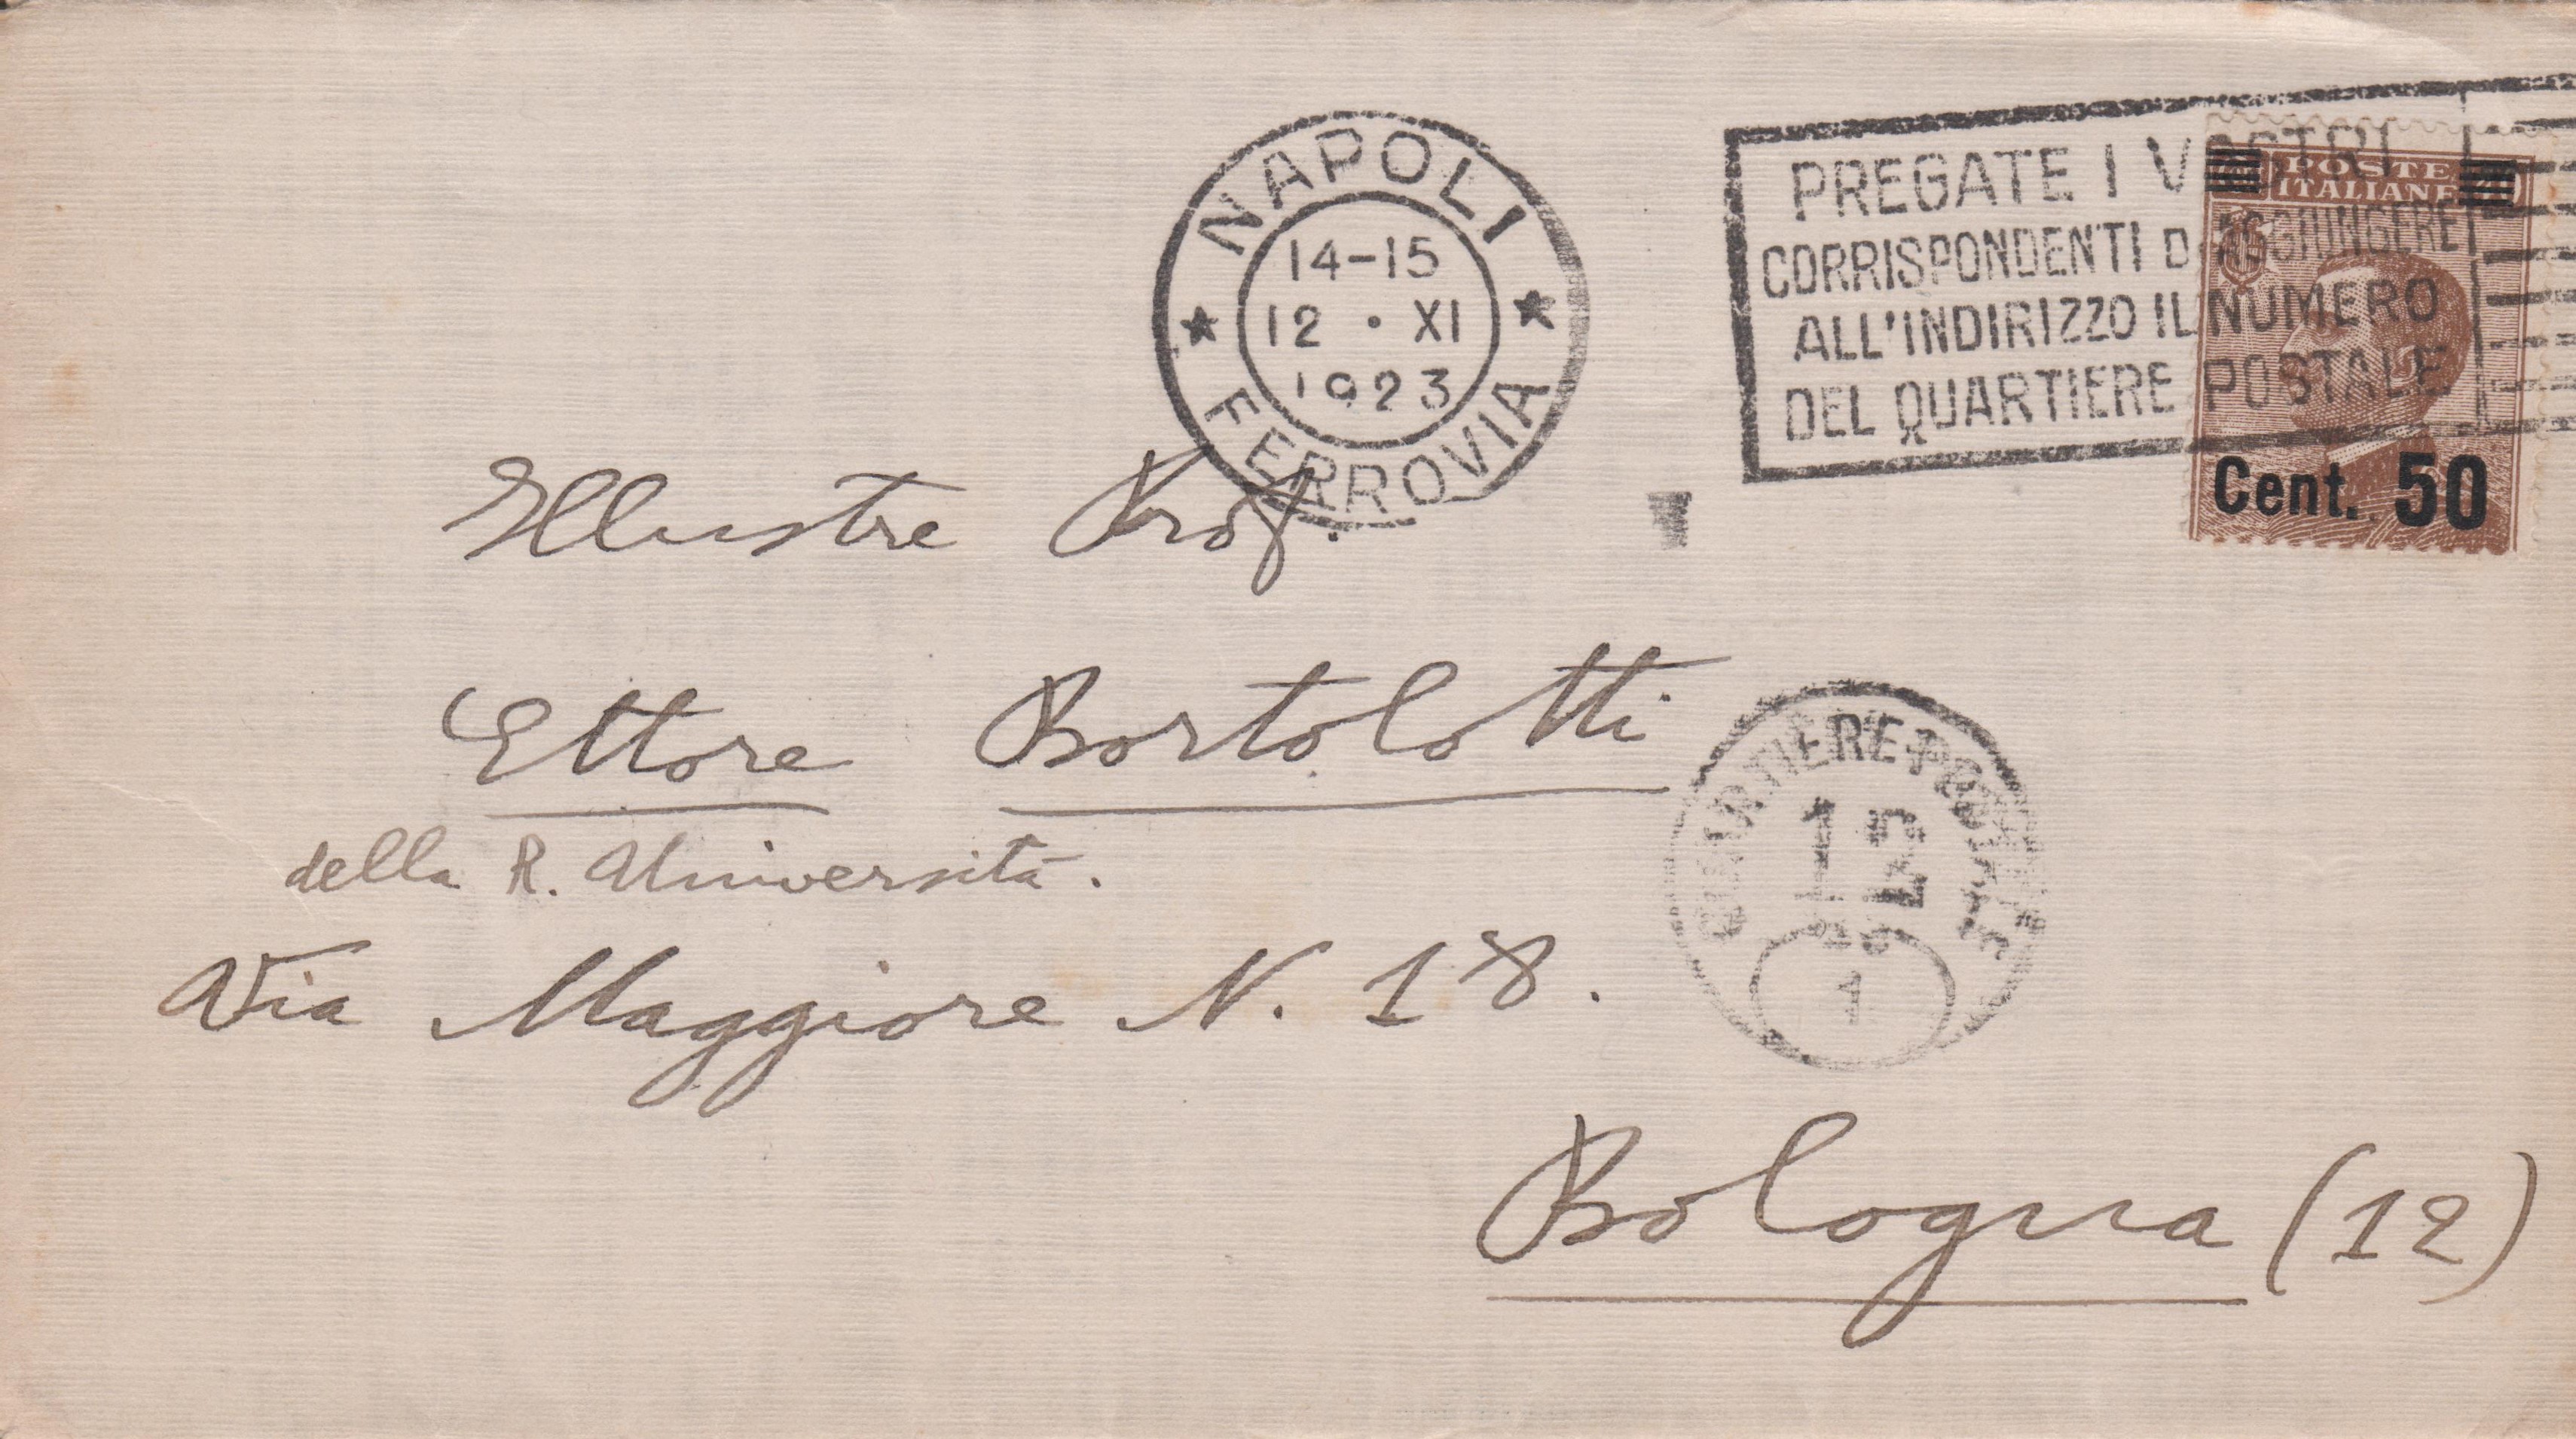 NAPOLI
14-15
12 · XI
1923
FERROVIA
PREGATE I VOSTRI
CORRISPONDENTI DI AGGIUNGERE
ALL'INDIRIZZO IL NUMERO
DEL QUARTIERE POSTALE
POSTE
ITALIANE
Cent. 50
Illustre Prof.
Ettore Bortolotti
della R. Università.
Via Maggiore N. 18.
QUARTIERE POSTALE
12
1
Bologna (12)